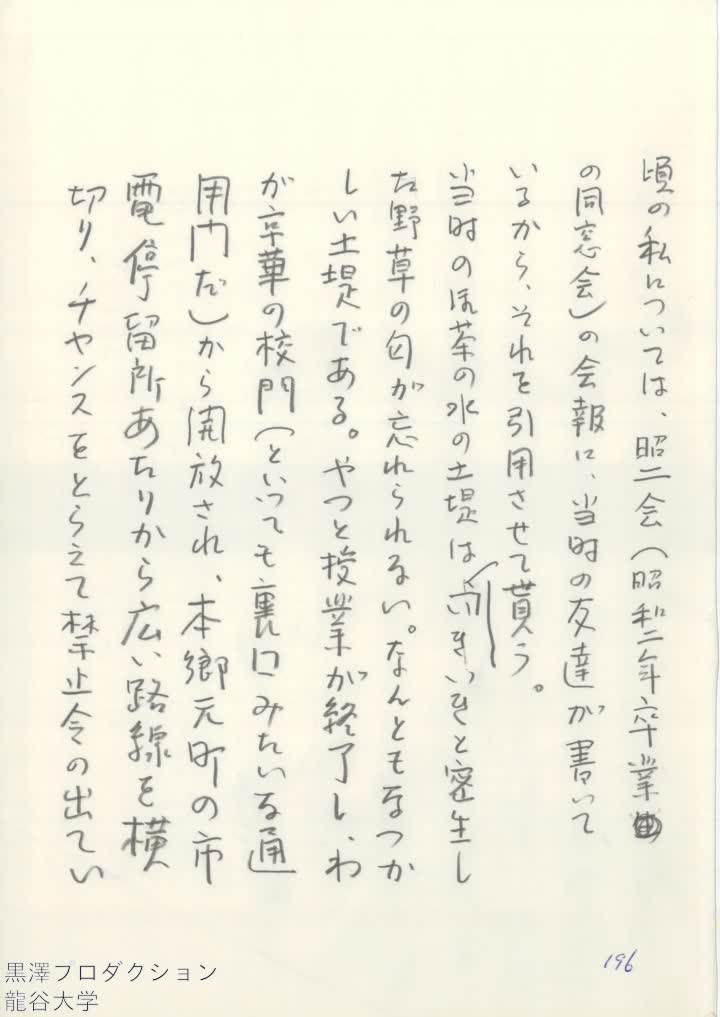 頃の私については、昭二会(昭和二年卒業
の同窓会)の会報に、当時の友達が書いて
いるから、それを引用させて貰う。
当時のお茶の水の土堤はいきいきと密生し
た野草の匂が忘れられない。なんともなつか
しい土堤である。やっと授業が終了し、わ
が京華の校門(といっても裏口みたいな通
用門だ)から開放され、本郷元町の市
電停留所あたりから広い路線を横
切り、チャンスをとらえて禁止令の出てい
196
黒澤プロダクション
龍谷大学